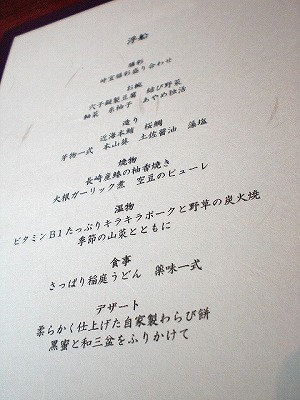 浮船
膳彩
特宝膳彩盛り合わせ
お椀
穴子擬製豆腐 結び野菜
軸菜 糸柚子 あやめ独活
造り
近海本鮪 桜鯛
芽物一式 本山葵 土佐醤油 藻塩
焼物
長崎産鰆の柚香焼き
大根ガーリック煮 空豆のピューレ
温物
ビタミンB1たっぷりキラキラポークと野草の炭火焼
季節の山菜とともに
食事
さっぱり稲庭うどん 薬味一式
デザート
柔らかく仕上げた自家製わらび餅
黒蜜と和三盆をふりかけて